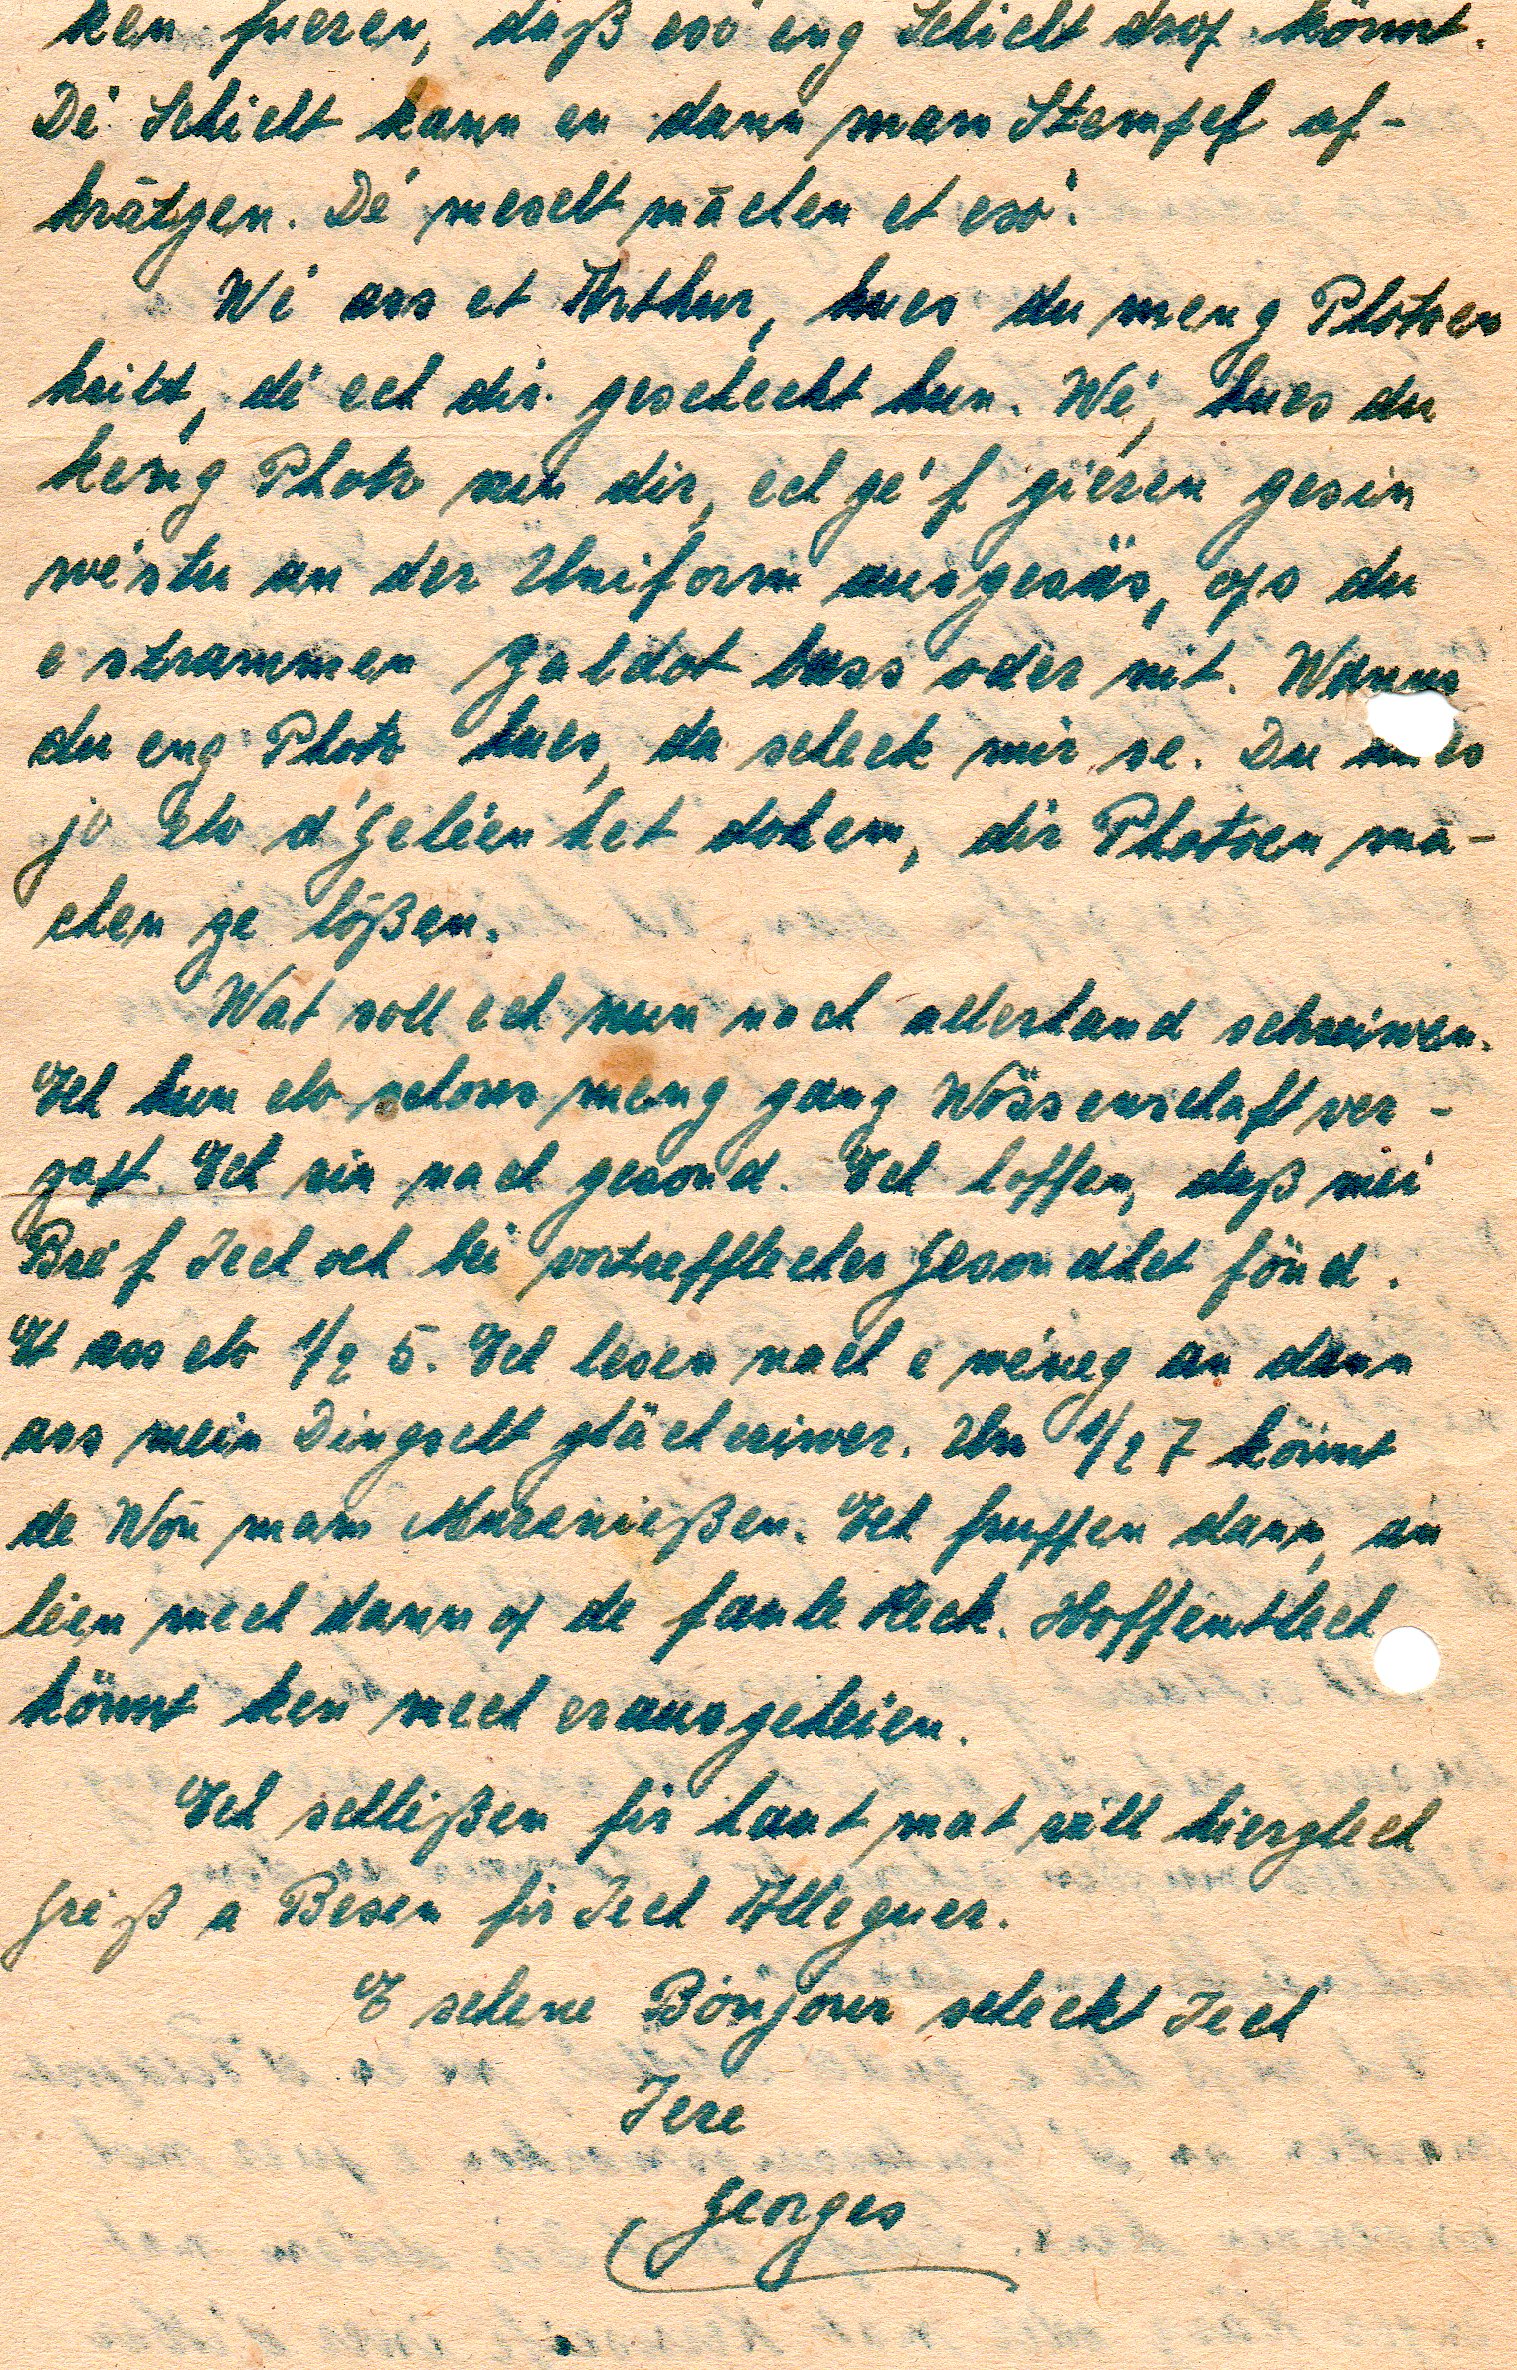 ken fueren, daß esó eng Schicht drop könnt.
Dé Schicht kann en dann mam Stempel of-
krätzen. Dé mescht mächen et esó.
Wé ass et Arthur, hues du meng Photoen
kritt, dé ech dir geschéckt hun. Wé, hues du
keng Photo vun dir, ech gé'f gieren gesin
wéstu an der Uniform ausgesäs, ops du
e strammen Zaldot bass oder nit. Wanns
du eng Photo hues, da scheck mir se. Du hues
jo elo d'Geléenhet dohem, dir Photoen mä-
chen ze lößen.
Wat soll ech nun nach allerhand schreiwen.
Ech hun elo schons meng ganz Wössenschaft ver-
zaft. Ech sin nach gesond. Ech hoffen, daß méi
Bréf Iech och bei vortrefflecher Gesondhet fönd.
Et ass elo 1/2 5. Ech lesen nach e wéneg an dann
ass mein Dingscht gläch eriwer. Um 1/2 7 könnt
de Won mam Mureníeßen. Ech fruppen dann, an
leien mech dann op de faule Reck. Hoffentlech
könnt ken mech erausgeheien.
Ech schlißen fir haut mat vill hierzlech
Gréß a Bèsen fir Iech Alleguer.
E schene Bónjour scheckt Iech
Iere
Georges